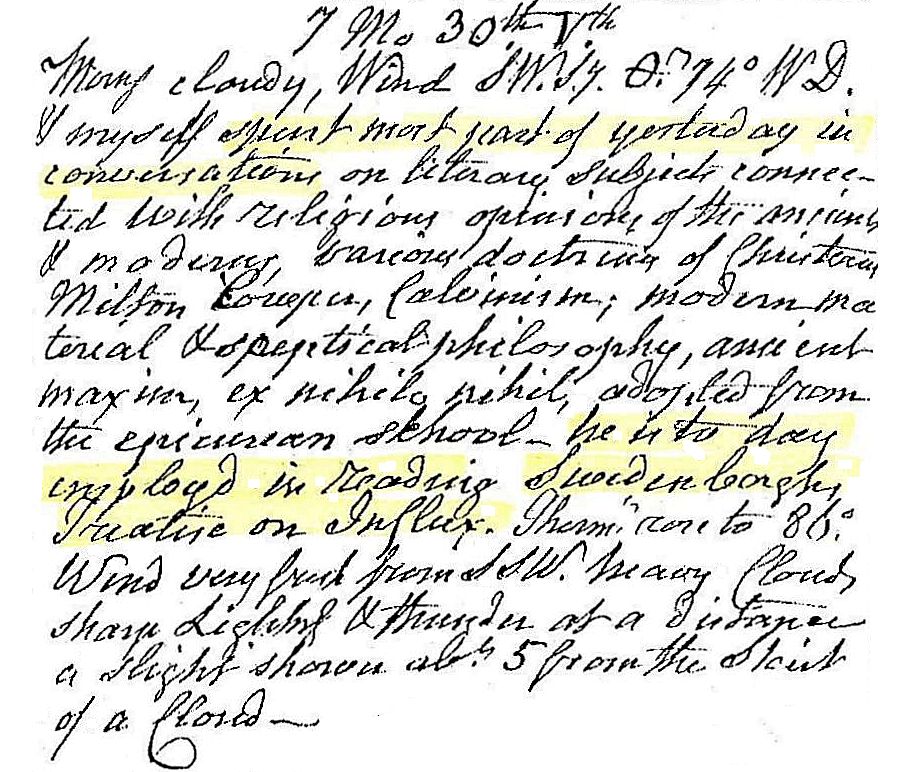 7 Mo 30th Vth
Morng cloudy, Wind S.W.Sy. 74° W D.
& myself spent most part of yesterday in
conversations on literary subjects connec-
ted with religious opinions of the ancients
& moderns, various doctrines of Christians
Milton Cowper, Calvinism; modern ma
terial & skeptical philosophy, ancient
maxim, ex nihilo nihil, adopted from
the epicurean school - he is to day
employd in reading Swedenborghs
Treatise on Influx. Thermr. rose to 86°.
Wind very fresh from SSW. heavy Clouds
sharp Lightng & thunder at a distance
a slight shower abt 5 from the Skirt
of a Cloud—